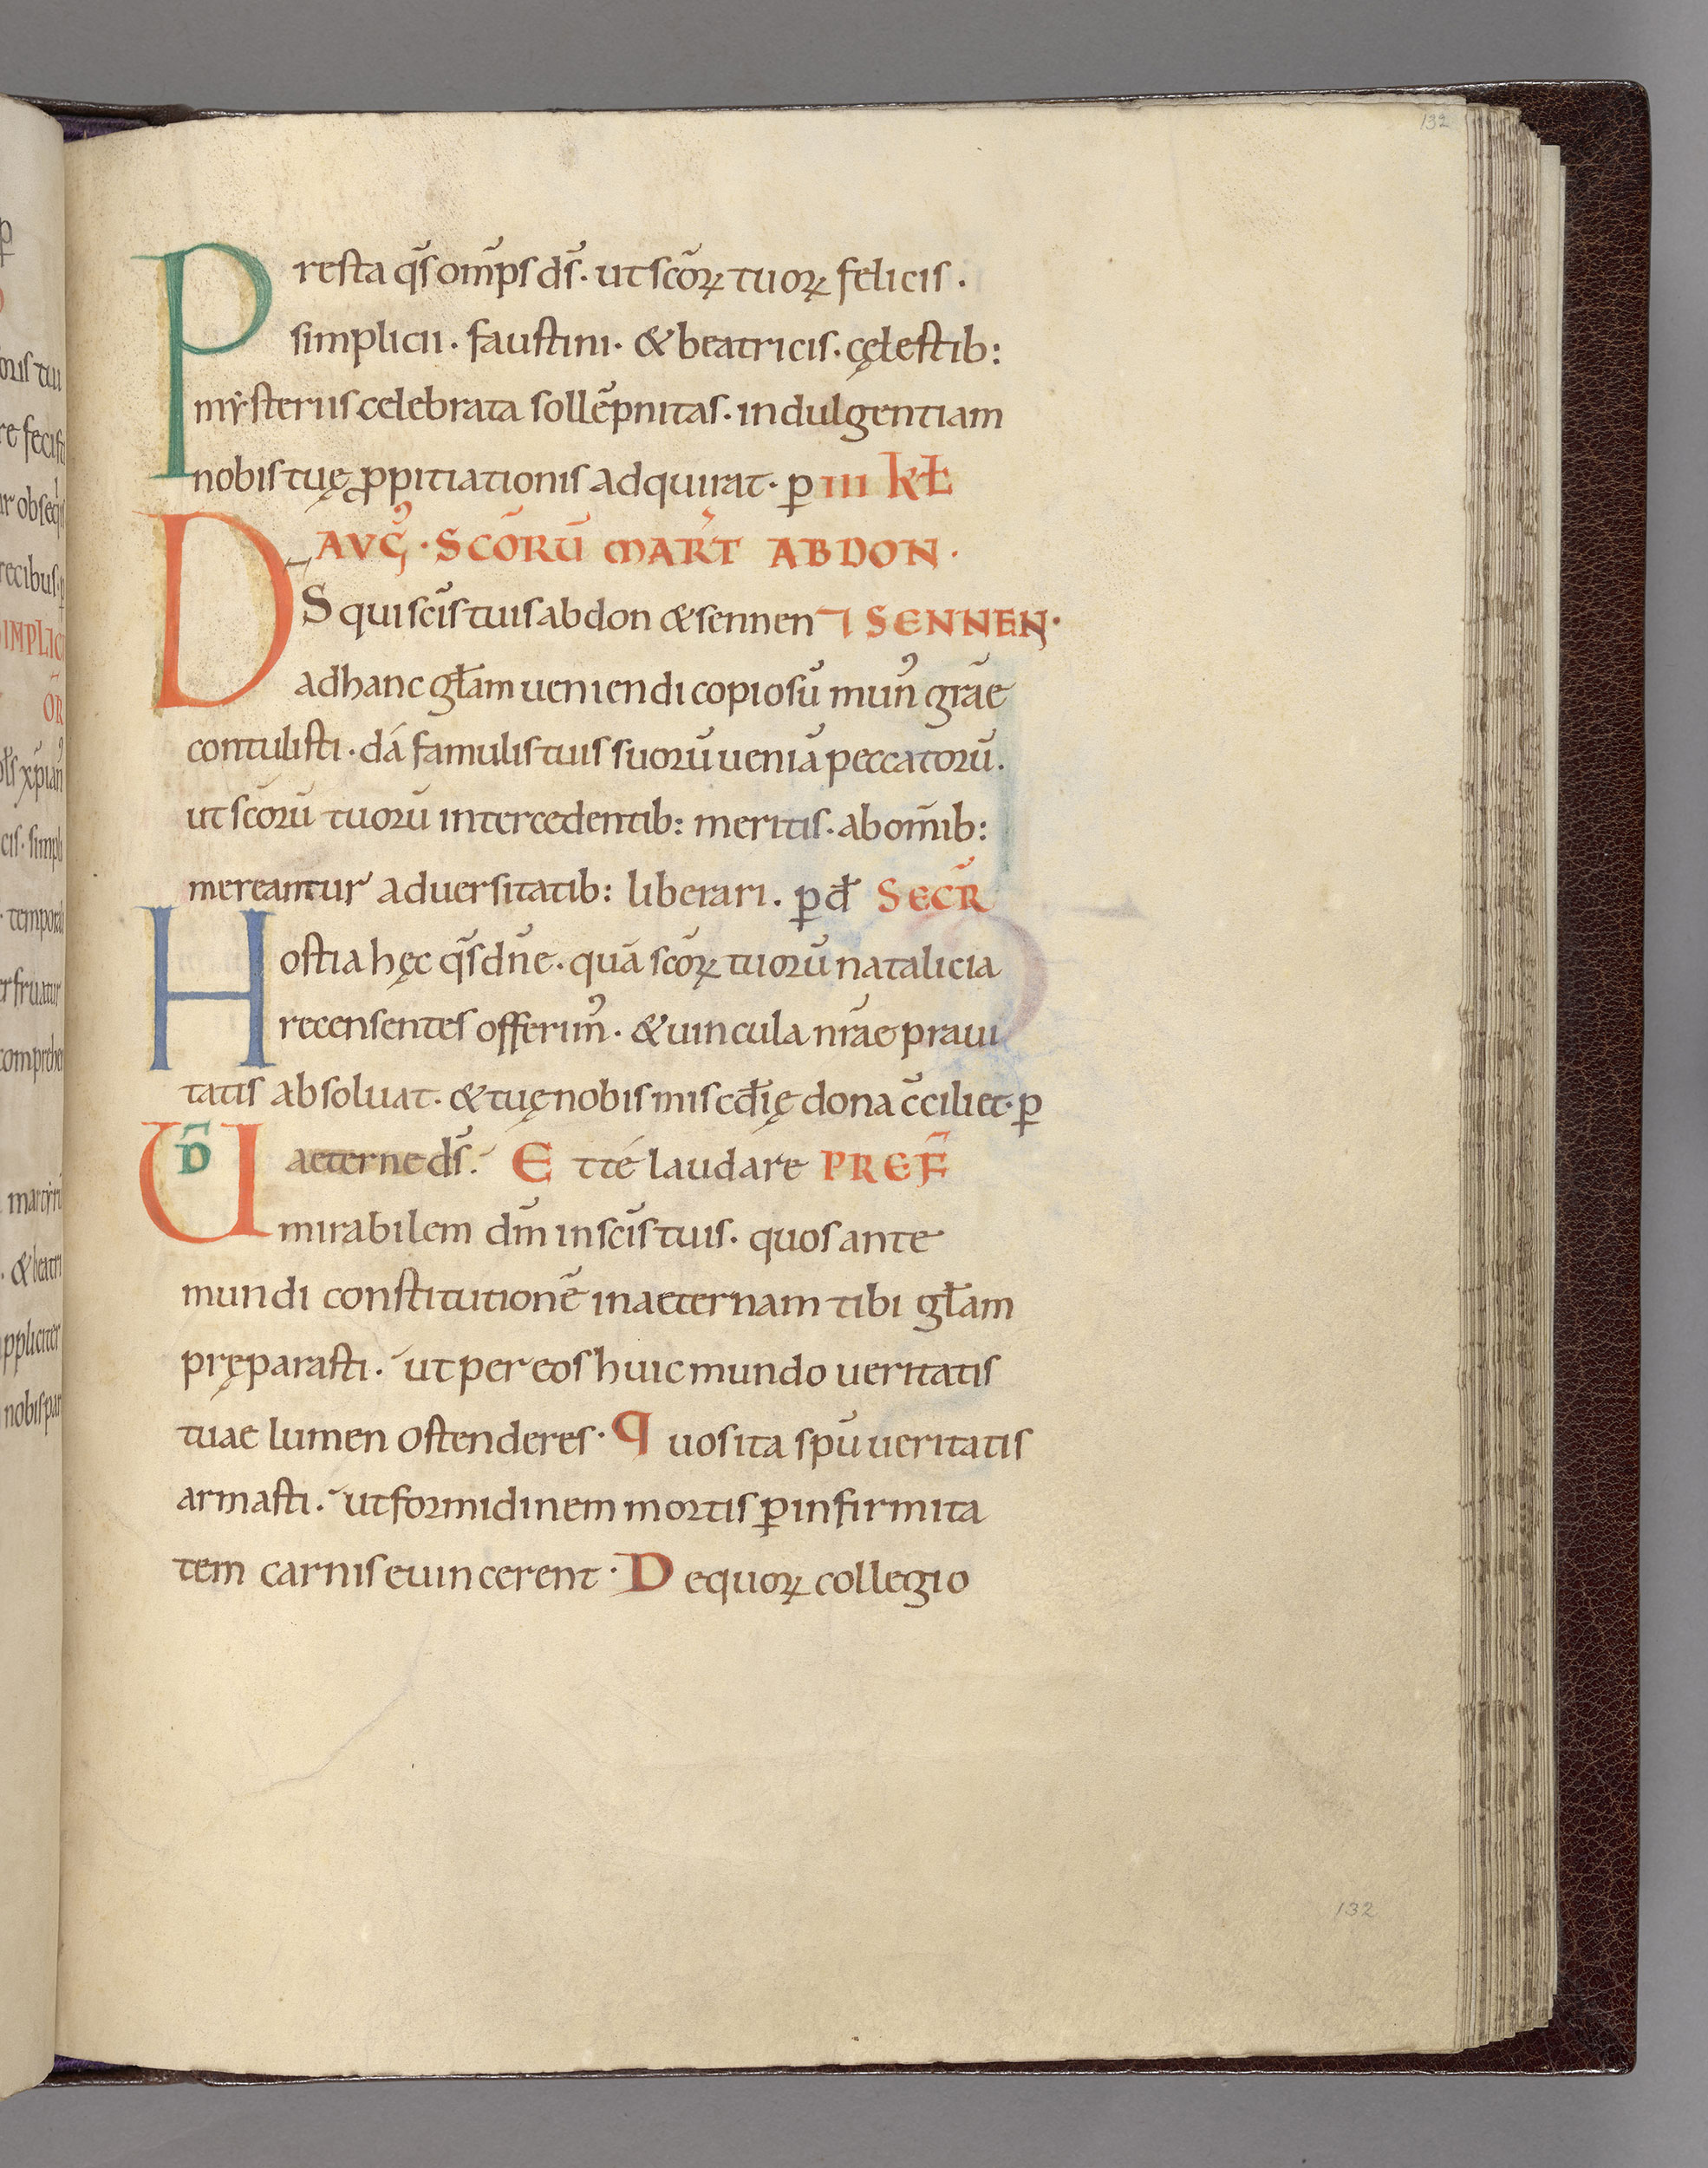 132
Presta q̄s om̄ps d̄s. ut scōꝝ tuoꝝ felicis.
simplicii. faustini. & beatricis. cęlestib:
mẏsteriis celebrata sollēpnitas. indulgentiam
nobis tuę ꝓpitiationis adquirat. p̲ III kƚ
AVḠ. SCŌRŪ MAR̄T ABDON.
DS̄ qui sc̄is tuis abdon & sennen ⁊ SENNEN.
ad hanc gƚam ueniendi copiosū mun᷒ grāe
contulisti. dá famulis tuis suorū ueniā peccatorū.
ut scōrū tuorū intercedentib: meritis. ab om̄ib:
mereantur aduersitatib: liberari. ꝑ đ SECR̄
Hostia hęc q̄s dn̄e. quā scōꝝ tuorū natalicia
recensentes offerim᷒. & uincula nr̄ae praui
tatis absoluat. & tuę nobis miscđię dona c̄ciliet. ꝑ
UD̄ aeterne d̄s. E t té laudáre PREF̄
mirabilem dm̄ in sc̄is tuis. quos ante
mundi constitutionē in aeternam tibi gƚam
pręparasti. ut per eos huic mundo ueritatis
tuae lumen ostenderes. Quos ita sp̄u ueritatis
armasti. ut formidinem mortis ꝑ infirmita
tem carnis euincerent. De quoꝝ collegio
132
oris tui
re fecist
recibus
IMPLIC
ŌR
cis. simpli
tempora
comprehen
martẏrū
. & beatri
ppliciter
nobis par